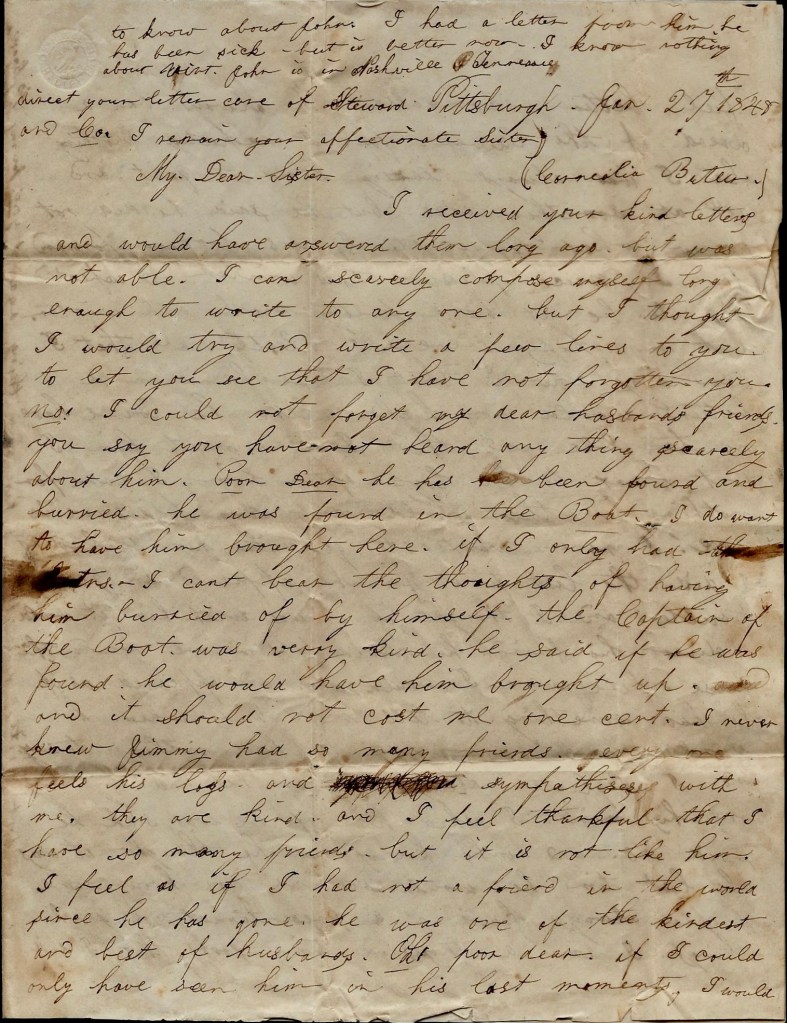 to know about John. I had a letter from him, he
has been sick - but is better now - I know nothing
about John is in Nashville Tennessee
direct your letter care of Steward Pittsburgh. Jan. 27th 1848
and Co. I remain your affectionate Sister
My Dear Sister. (Cornelia
I received your kind letters
and would have answered them long ago. but was
not able. I can scarcely compose myself long
enough to write to any one. but I thought
I would try and write a few lines to you.
to let you see that I have not forgotten you.
no! I could not forget my dear husbands friends.
you say you have not heard any thing scarcely
about him. Poor Dear he has been found and
burried. he was found in the Boat. I do want
to have him brought here. if I only had the
I cant bear the thoughts of having
him burried of by himself. the Captain of
the Boat. was verry kind. he said if he was
found. he would have him brought up. and
and it should not cost me one cent. I never
knew Jimmy had so many friends. every one
feels his loss. and sympathises with
me. they are kind. and I feel thankful that I
have so many friends. but it is not like him.
I feel as if I had not a friend in the world
since he has gone. he was one of the kindest
and best of husbands. Oh! poor dear. if I could
only have seen him in his last moments, I would